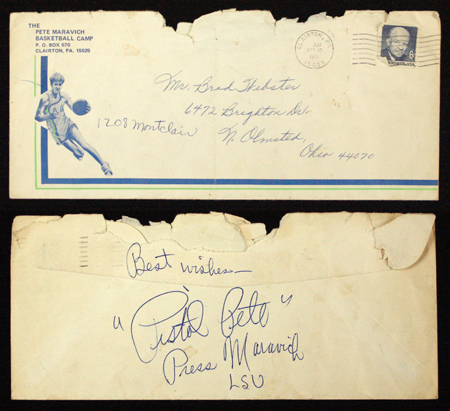 THE
PETE MARAVICH
BASKETBALL CAMP
P. O. BOX 570
CLAIRTON, PA. 15025
CLAIRTON, PA.
AM
15025
Mr. Brad Webster
6472 Brighton Dr.
1208 Montclair
N. Olmsted,
Ohio 44070
Best wishes—
"Pistol Pete"
Press Maravich
LSU